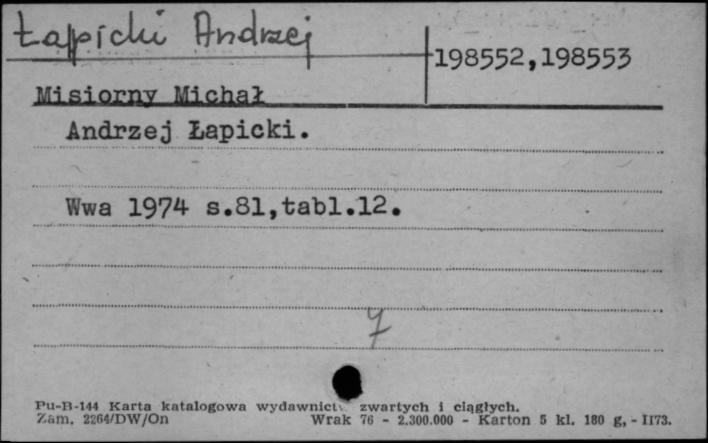 Łapicki Andrzej
198552,198553
Misiorny Michał
Andrzej Łapicki.
Wwa 1974 s.81,tabl.12.
7
Pu-B-144 Karta katalogowa wydawnictw zwartych i ciągłych.
Zam. 2264/DW/On Wrak 76 - 2.300.000 - Karton 5 kl. 180 g, - II73.